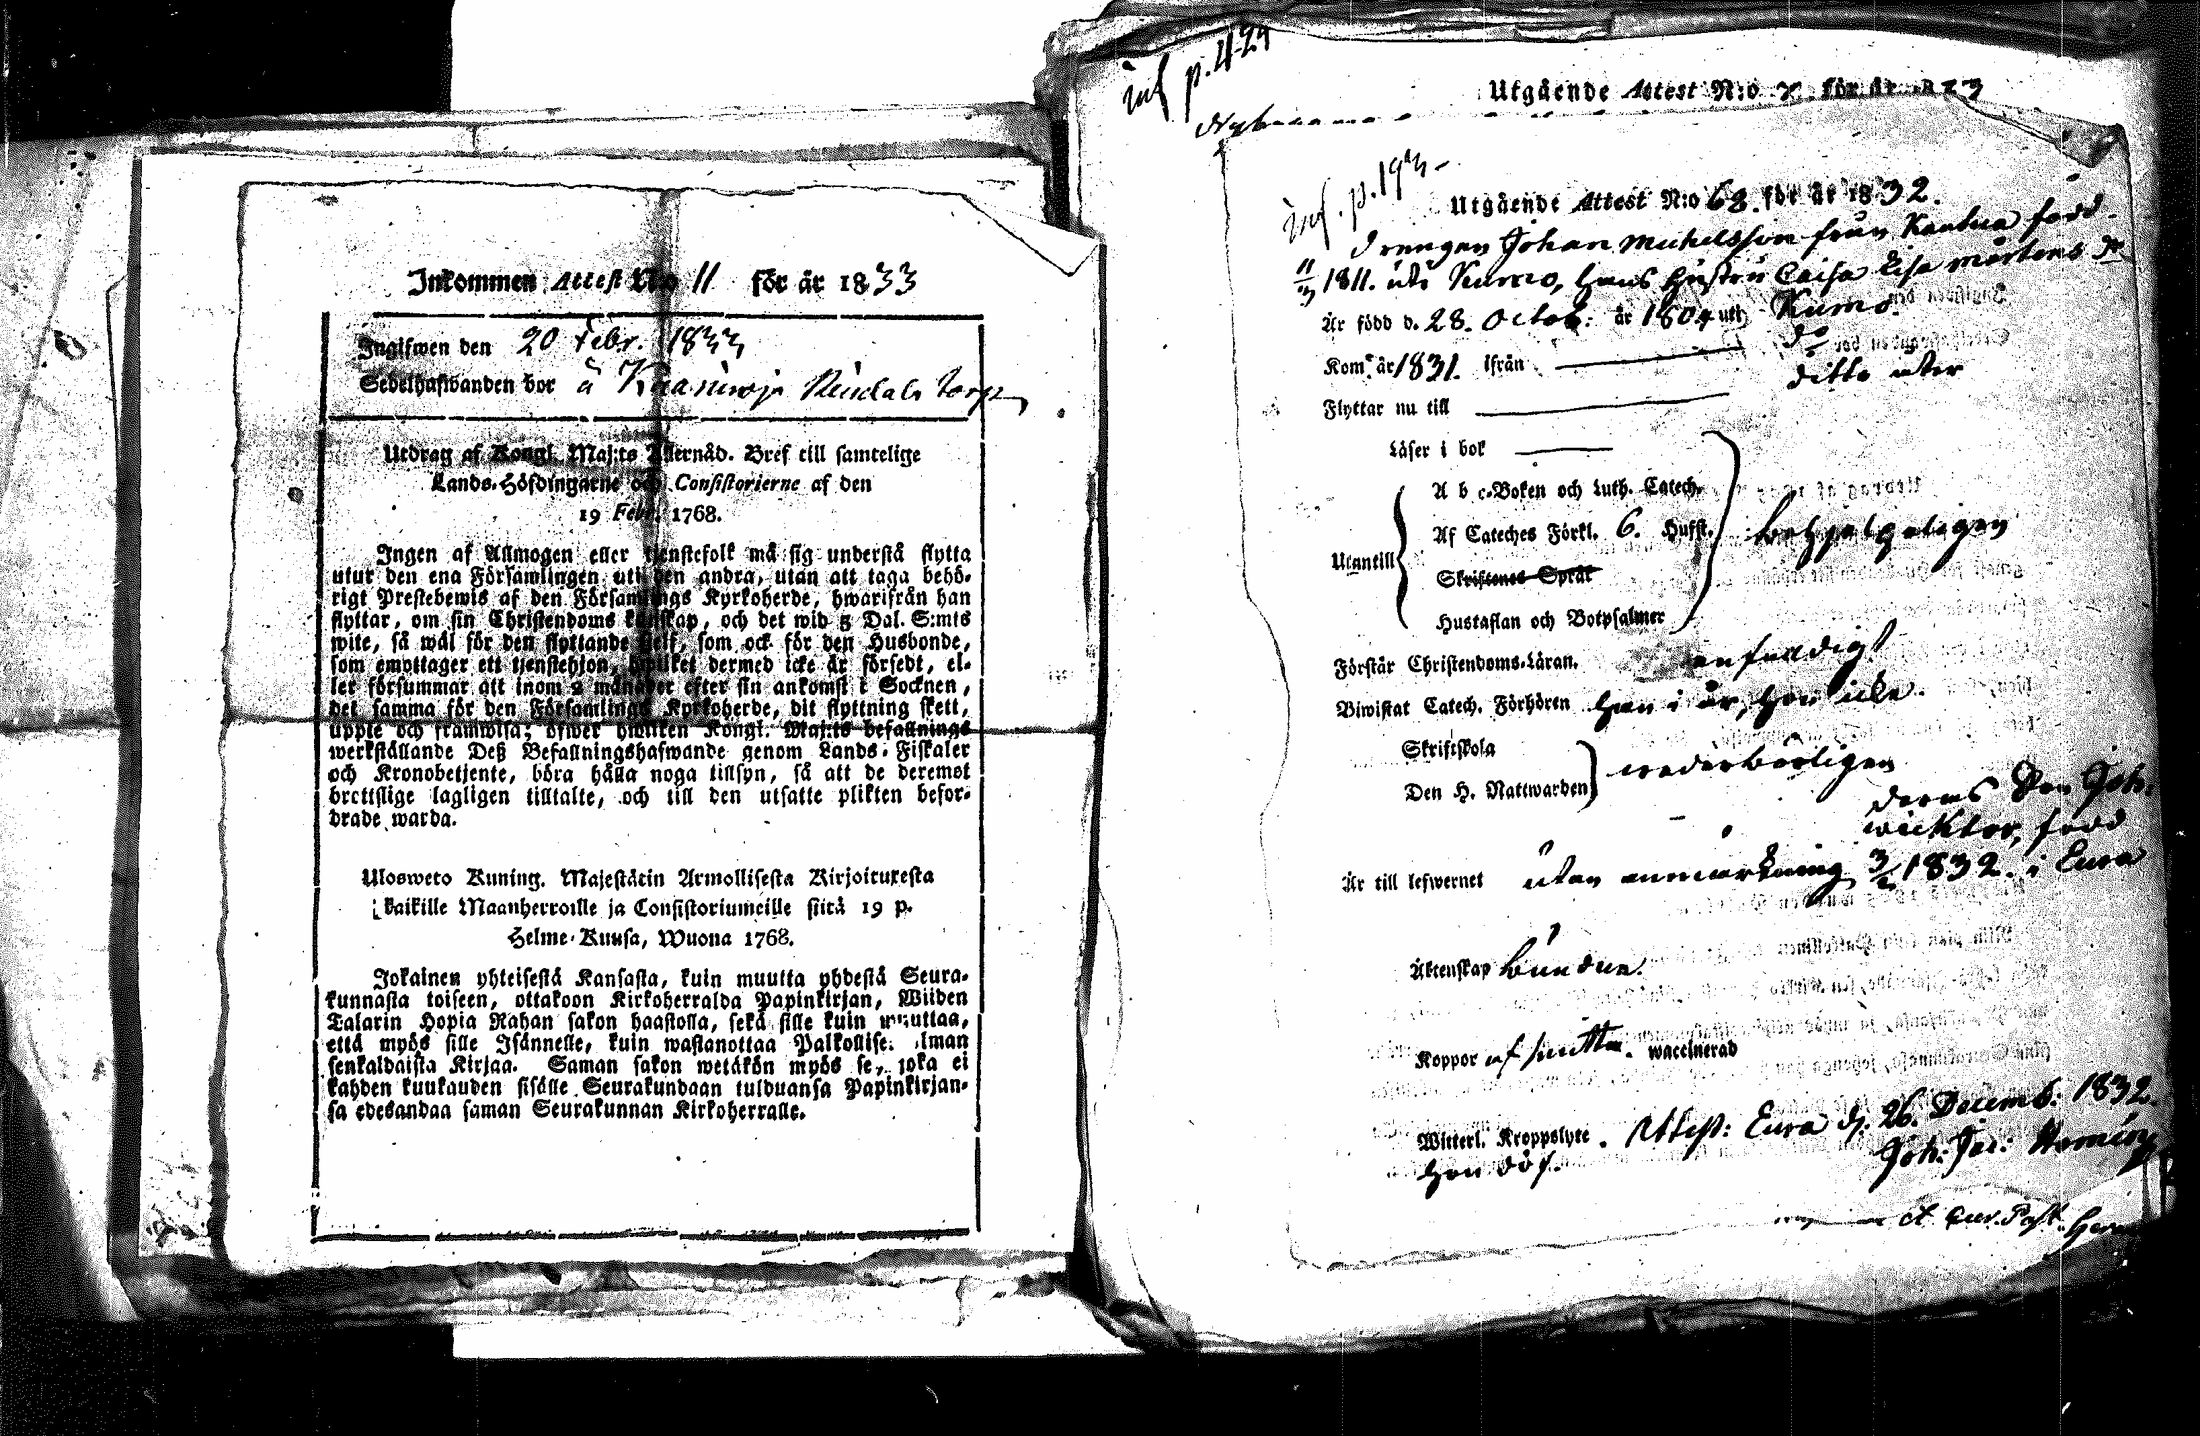 Inkommen Attest No 11 för år 1833
Ingifwen den 20 Febr. 1833
Sedelhafwanden bor å torp
Utdrag af Kongl. Maj:ts Allernåd. Bref till samtelige
Lands-Höfdingarne och Consistorierne af den
19 Febr. 1768.
Ingen af Allmogen eller tjenstefolk må sig understå flytta
utur den ena Församlingen uti den andra, utan att taga behö-
rigt Prestebewis af den Församlings Kyrkoherde, hwarifrån han
flyttar, om sin Christendoms kunskap, och det wid 5 Dal. S:mts
wite, så wäl för den flyttande sielf, som ock för den Husbonde,
som emottager ett tjenstehion, hwilket dermed icke är försedt, el-
ler försummar att inom 2 månader efter sin ankomst i Socknen,
det samma för den Församlings Kyrkoherde, dit flyttning skett,
uppte och framwisa; öfwer hwilken Kongl. Maj:ts befallnings
werkställande Deß Befallningshafwande genom Lands-Fiskaler
och Kronobetjente, böra hålla noga tillsyn, så att de deremot
brottslige lagligen tilltalte, och till den utsatte plikten befor-
drade warda.
Ulosweto Kuning. Majestätin Armollisesta Kirjoituxesta
kaikille Maanherroille ja Consistoriumeille siitä 19 p.
Helme-Kuusa, Wuona 1768.
Jokainen yhteisestä Kansasta, kuin muutta yhdestä Seura-
kunnasta toiseen, ottakoon Kirkoherralda Papinkirjan, Wiiden
Talarin Hopia Rahan sakon haastolla, sekä sille kuin muuttaa,
että myös sille Isännelle, kuin wastanottaa Palkollise. ilman
senkaldaista Kirjaa. Saman sakon wetäkön myös se, joka ei
kahden kuukauden sisälle Seurakundaan tulduansa Papinkirjan-
sa edesandaa saman Seurakunnan Kirkoherralle.
inf p. 429
Utgående Attest N:o för år
inf. p. 193
Utgående Attest N:o 68. för år 1832.
Drengen Johan Michelsson från Kauttua född
11/3 1811. uti Kumo, hans hustru Caisa Lisa Mårtens dr
Är född d. 28. Octob: år 1804 uti Kumo.
Kom år 1831. ifrån do
Flyttar nu till ditto åter
Läser i bok
A b c-Boken och Luth. Catech.
Af Cateches Förkl. 6. Hufst.
Utantill
Skriftenes Språk
Hustaflan och Botpsalmer
Förstår Christendoms-Läran. enfaldigt
Biwistat Catech. Förhören han i år, hon icke.
Skriftskola
Den H. Nattwarden wederbörligen
deras Son Joh.
wicktor, född
Är till lefwernet utan anmärkning 3/2 1832. i Eura
Äktenskap bundne.
Koppor af smitta. waccinerad
Witterl. Kroppslyte. Attest: Eura d. 26. Decemb: 1832.
Hon döf. Joh: Jac: